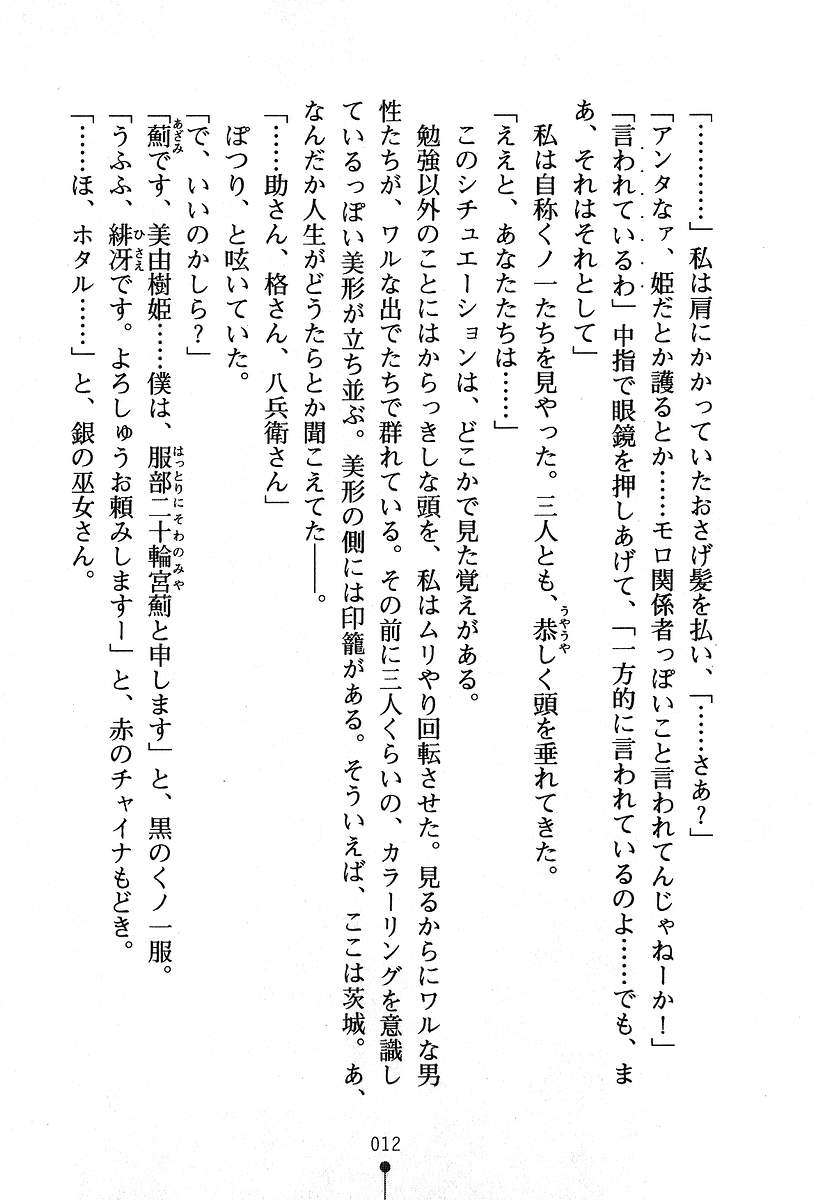 「…………」私は肩にかかっていたおさげ髪を払い、「……さあ？」
「アンタなァ、姫だとか護るとか……モロ関係者っぽいこと言われてんじゃねーか！」
「言われているわ」中指で眼鏡を押しあげて、「一方的に言われているのよ……でも、ま
あ、それはそれとして」
　私は自称くノ一たちを見やった。三人とも、恭しく頭を垂れてきた。
「ええと、あなたたちは……」
　このシチュエーションは、どこかで見た覚えがある。
　勉強以外のことにはからっきしな頭を、私はムリやり回転させた。見るからにワルな男
性たちが、ワルな出でたちで群れている。その前に三人くらいの、カラーリングを意識し
ているっぽい美形が立ち並ぶ。美形の側には印籠がある。そういえば、ここは茨城。あ、
なんだか人生がどうたらとか聞こえてた――。
「……助さん、格さん、八兵衛さん」
　ぽつり、と呟いていた。
「で、いいのかしら？」
「薊です、美由樹姫……僕は、服部二十輪宮薊と申します」と、黒のくノ一服。
「うふふ、緋冴です。よろしゅうお頼みしますー」と、赤のチャイナもどき。
「……ほ、ホタル……」と、銀の巫女さん。
012